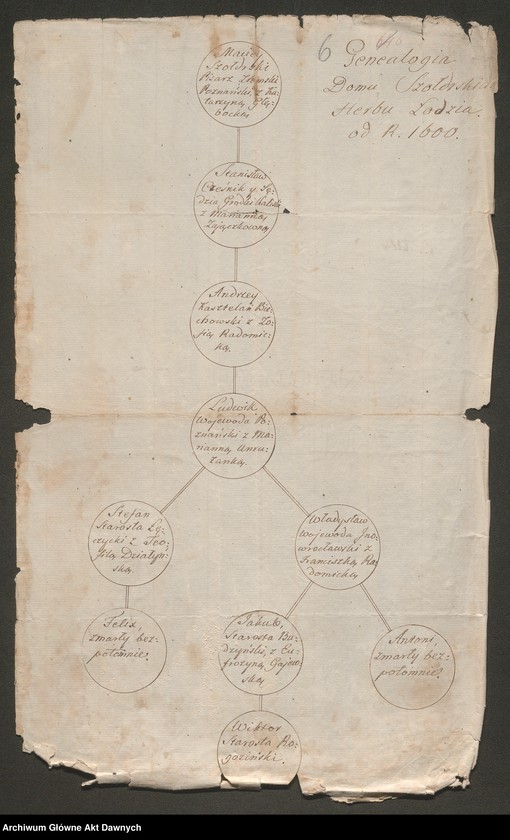 6
Genealogia
Domu Szołdrskich
Herbu Łodzia
od R. 1600.
Maciej
Szołdrski
Pisarz Ziemski
Poznański, z Ka=
tarzyną Głę=
bocką
Stanisław
Cześnik y Sę=
dzia Grodzki Kaliski
z Marianną
Zajączkowoną
Andrzey
Kasztelan Bie=
chowski z Zo=
fią Radomic=
ką.
Ludwik
Wojewoda Po=
znański z Ma=
rianną Unru=
żanką.
Stefan
Starosta Łę=
czycki z Teo=
filą Działyń=
ską.
Władysław
Wojewoda Jno=
wrocławski z
Franciszką Ra=
domicką
Felix,
zmarły bez=
potomnie.
Jakub,
Starosta Bu=
dzyński, z Eu=
frozyną Gajew=
ską
Antoni,
zmarły bez=
potomnie.
Wiktor
Starosta Ro=
goziński.
Archiwum Główne Akt Dawnych